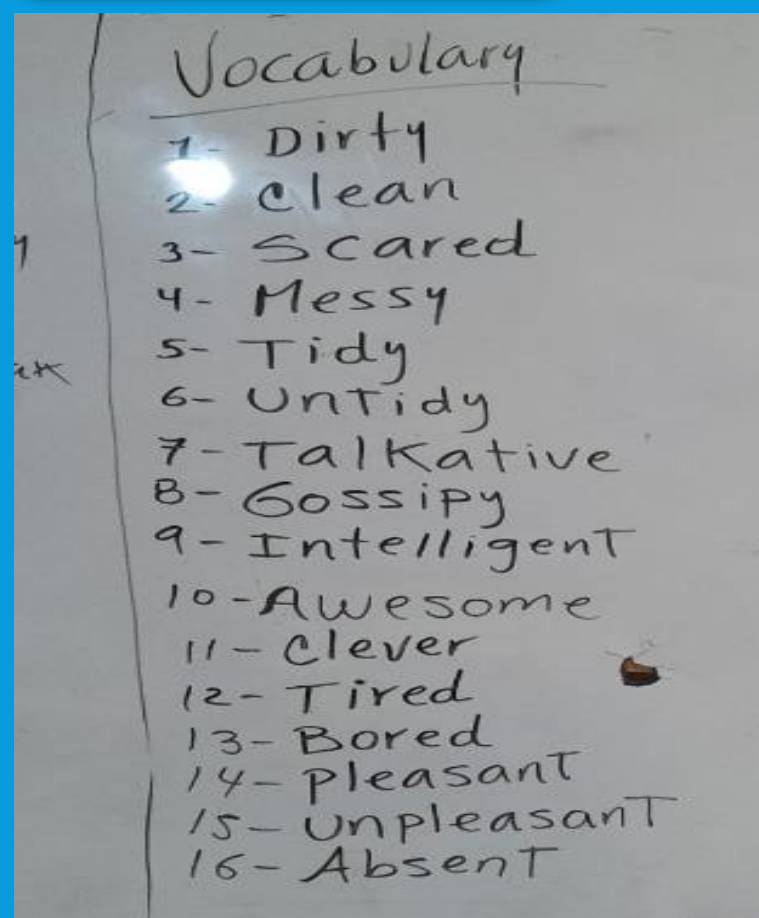 Vocabulary
1- Dirty
2- Clean
3- Scared
4- Messy
5- Tidy
6- Untidy
7- Talkative
8- Gossipy
9- Intelligent
10- Awesome
11- Clever
12- Tired
13- Bored
14- Pleasant
15- Unpleasant
16- Absent